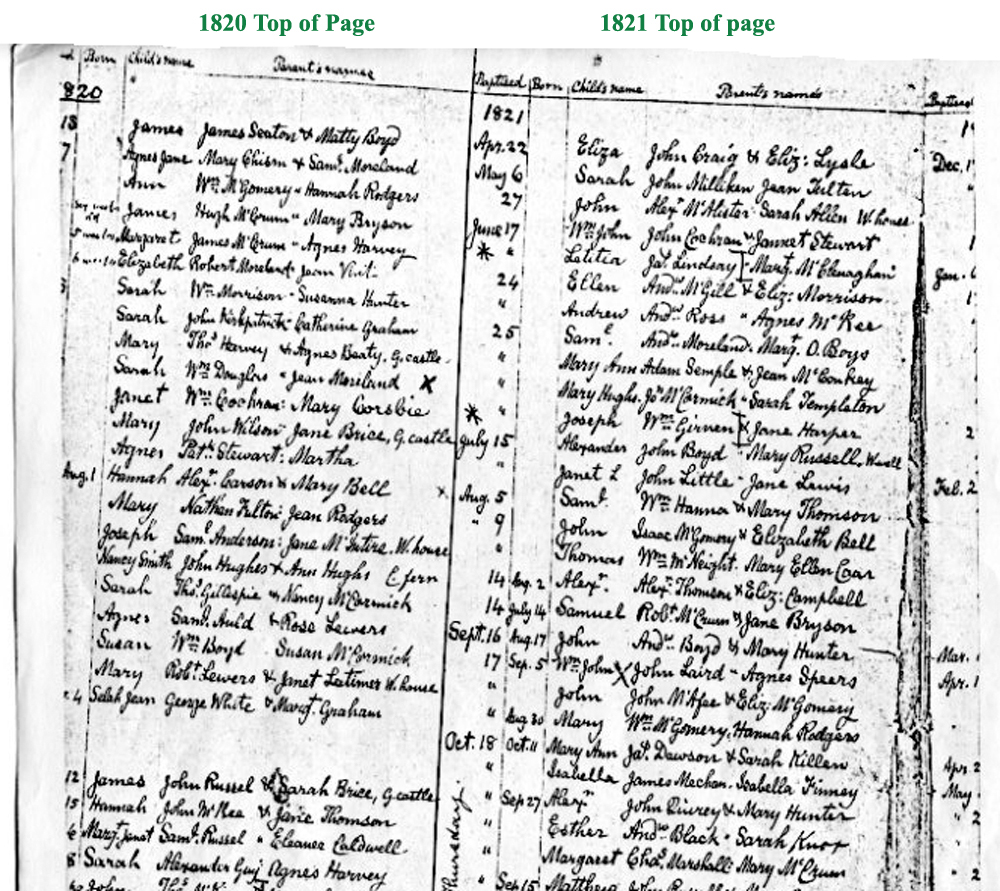 1820 Top of Page
1821 Top of page
Born Child's name Parent's names
1820
13 James James Seaton & Matty Boyd
7 Agnes Jane Mary Chism & Saml. Moreland
Ann Wm McGomery " Hannah Rodgers
James Hugh McCrum " Mary Bryson
Margaret James McCrum " Agnes Harvey
Elizabeth Robert Moreland Jean
Sarah Wm Morrison - Susanna Hunter
Sarah John Kirkpatrick Catherine Graham
Mary Thos Harvey & Agnes Beaty, G.castle
Sarah Wm Douglas " Jean Moreland X
Janet Wm Cochran: Mary Corsbie
Mary John Wilson Jane Brice, G.castle
Agnes Patk. Stewart: Martha
Aug. 1 Hannah Alexr. Carson & Mary Bell x
Mary Nathan Fulton Jean Rodgers
Joseph Saml. Anderson: Jane W.house
Nancy Smith John Hughes & Ann Hughs E fern
Sarah Thos. Gillespie " Nancy McCormick
Agnes Saml. Auld & Rose Lewers
Susan Wm Boyd Susan McCormick
Mary Robt. Lewers & Janet Latimer W.house
4 Selah Jean George White & Margt. Graham
12 James John Russel & Sarah Brice, G.castle
15 Hannah John McKee & Jane Thomson
6 Margt. Janet Saml. Russel " Eleanor Caldwell
8 Sarah Alexander Guy Agnes Harvey
John
Baptised Born Child's name Parent's names
1821
Apr. 22 Eliza John Craig & Eliz: Lysle
May 6 Sarah John Milliken Jean Fulton
27 John Alexr McAlister Sarah Allen W.house
June 17 Wm John John Cochran & Jannet Stewart
* " Letitia Jas. Lindsay Margt. McClenaghan
24 Ellen Andw. McGill & Eliz: Morrison
" Andrew Andw Ross " Agnes McKee
25 Saml. Andw Moreland. Margt. O. Boys
" Mary Ann Adam Semple & Jean McConkey
" Mary Hughs. Jn McCormick " Sarah Templeton
* " Joseph Wm Girven & Jane Harper
July 15 Alexander John Boyd " Mary Russell,
" Janet L John Little - Jane Lewis
Aug. 5 Saml. Wm Hanna & Mary Thomson
" 9 John Isaac McGomery & Elizabeth Bell
" Thomas Wm McNeight. Mary Ellen Caar
14 Aug. 2 Alexr. Alexr. Thomson & Eliz: Campbell
14 July 14 Samuel Robt. McCrum & Jane Bryson
Sept. 16 Aug. 17 John Andw Boyd & Mary Hunter
17 Sep. 5 Wm John X John Laird - Agnes Speers
" John John McAfee & Eliz: McGomery
" Aug 30 Mary Wm McGomery, Hannah Rodgers
Oct. 18 Oct. 11 Mary Ann Jas. Dawson & Sarah Killen
" Isabella James Mechan. Isabella Finney
" Sep 27 Alexr. John & Mary Hunter
" Esther Andw Black - Sarah Knox
" Margaret Chas. Marshall: Mary McCrum
Thursday
Sep 15 Matthew John
Baptised
Dec. 1
Jan. 6
1
2
Feb. 2
Mar.
Apr. 1
Apr. 2
May
" 2
" 2